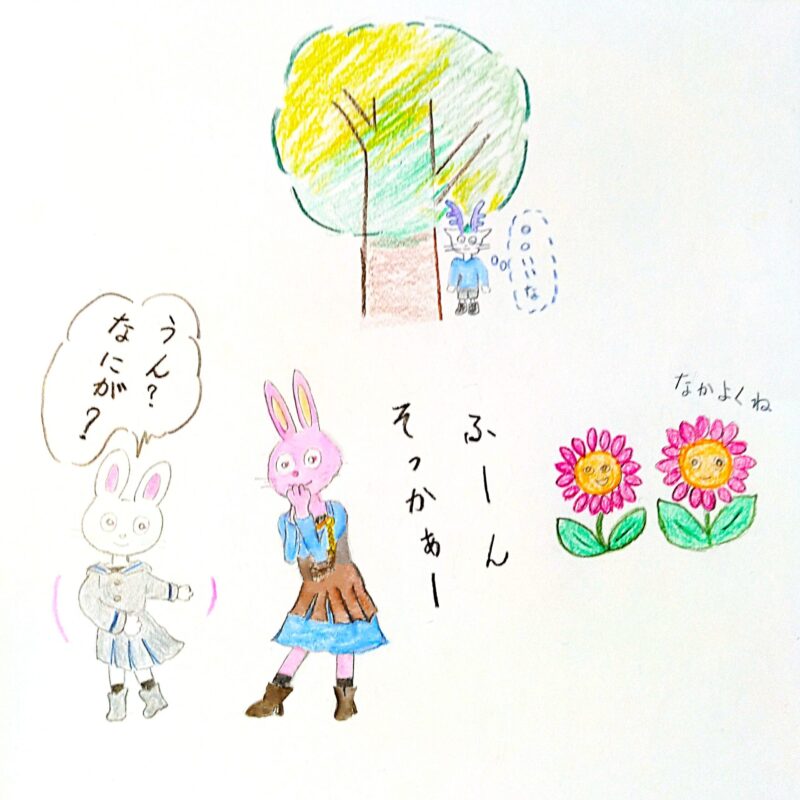 ○○いいな
うん?
なにが?
ふーん
そっかぁー
なかよくね